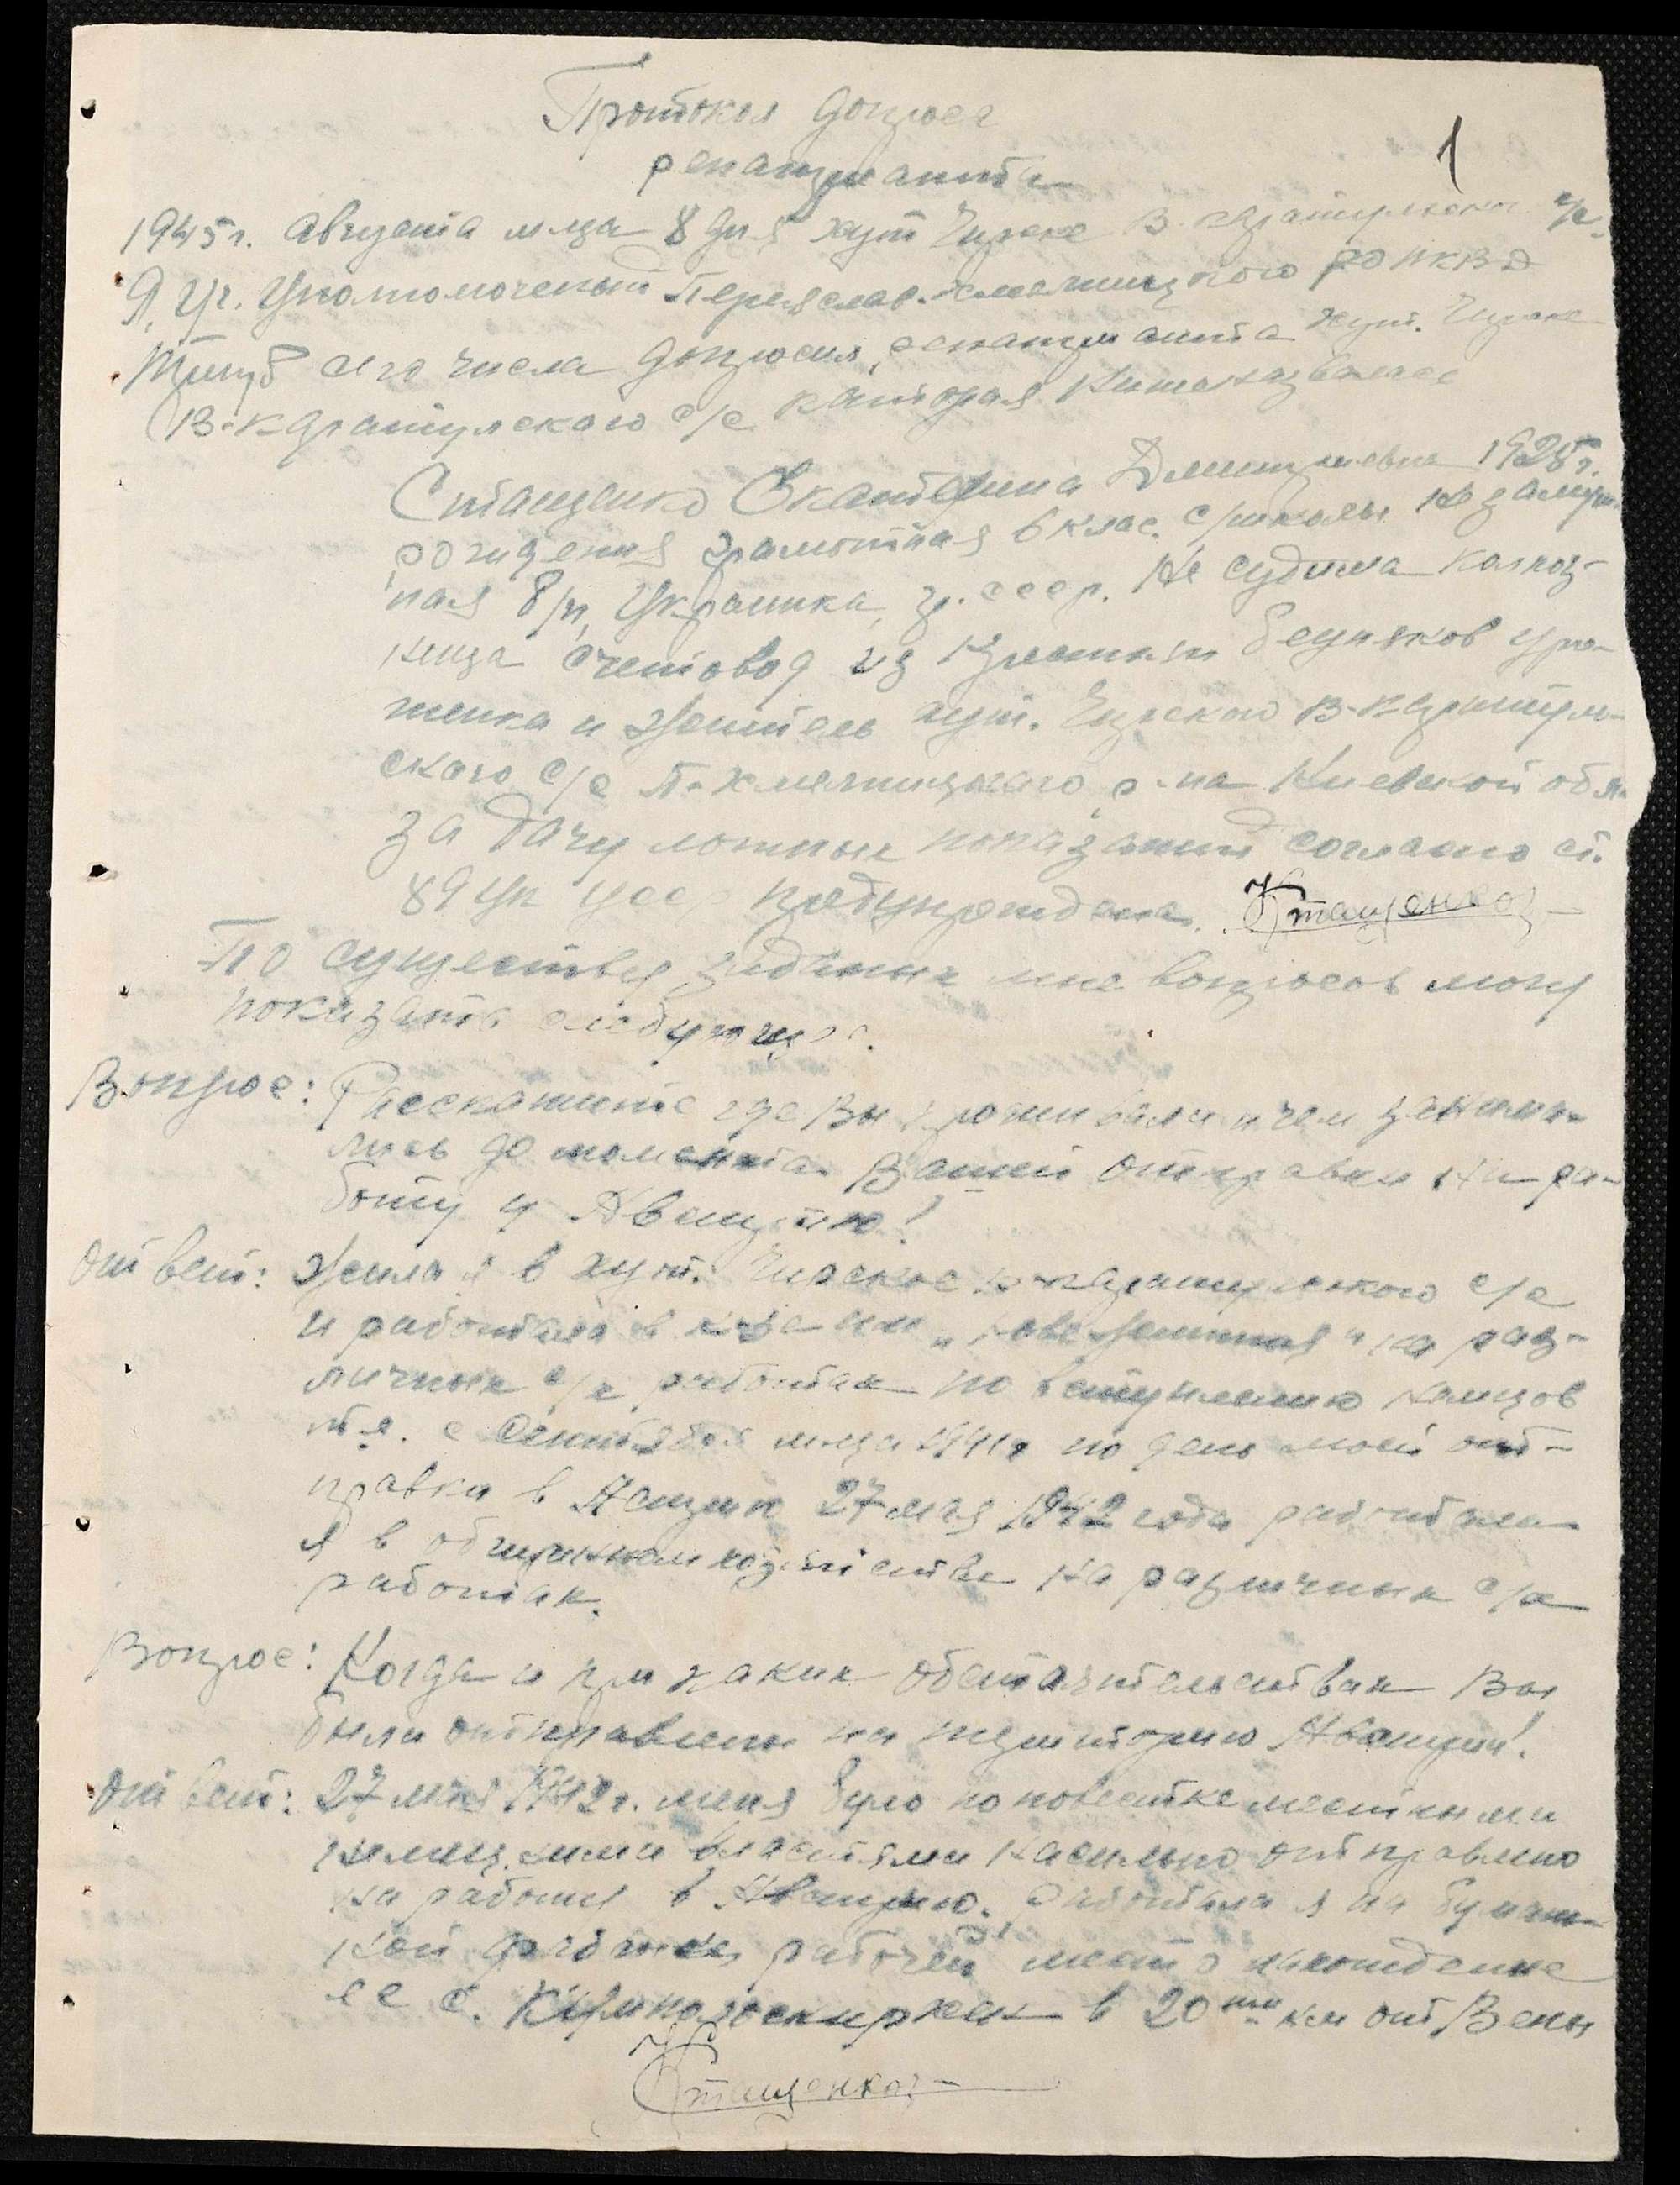 Протокол допроса
репатрианта
1
1945 г. Августа м-ца 8 дня хут В. Каратульского с/с.
Я, Уч. Уполномоченый Переяслав-Хмельницкого РО НКВД
сего числа допросил репатрианта хут.
В-Каратульского с/с которая назвалась
Стащенко Екатерина Дмитриевна 1925 г.
рождения грамотная 6 клас. с/школы Не замуж-
ная б/п, Украинка, гр. ссср. Не судима колхоз-
ница счетовод из крестьян бедняков уро-
женка и житель хут. В-Каратуль-
ского с/с П-Хмельницкого р-на Киевской обл.
За дачу ложных показаний согласно ст.
89 УК УССР предупреждена. Стащенко
По существу заданых мне вопросов могу
показать следующее.
Вопрос: Расскажите где Вы проживали и чем занима-
лись до момента Вашей отправки на ра-
боту у Австрию!
Ответ: Жила я в хут. В-Каратульского с/с
и работала в к-зе им на раз-
личных с/х работах по вступлению немцов
т.е. с Сентября м-ца 1941 г по день моей от-
правки в 27 мая 1942 года работала
я в общинном хозяйстве на различных с/х
работах.
Вопрос: Когда и при каких обстоятельствах Вы
были отправлены на територию Австрии!
Ответ: 27 мая 1942 г. меня було по повестке местными
немецкими властями насильно отправлено
на работу в Австрию. Работала я на бумаж-
ной фабрике, рабочей место нахождение
ее с. в 20ти км от Вены
Стащенко